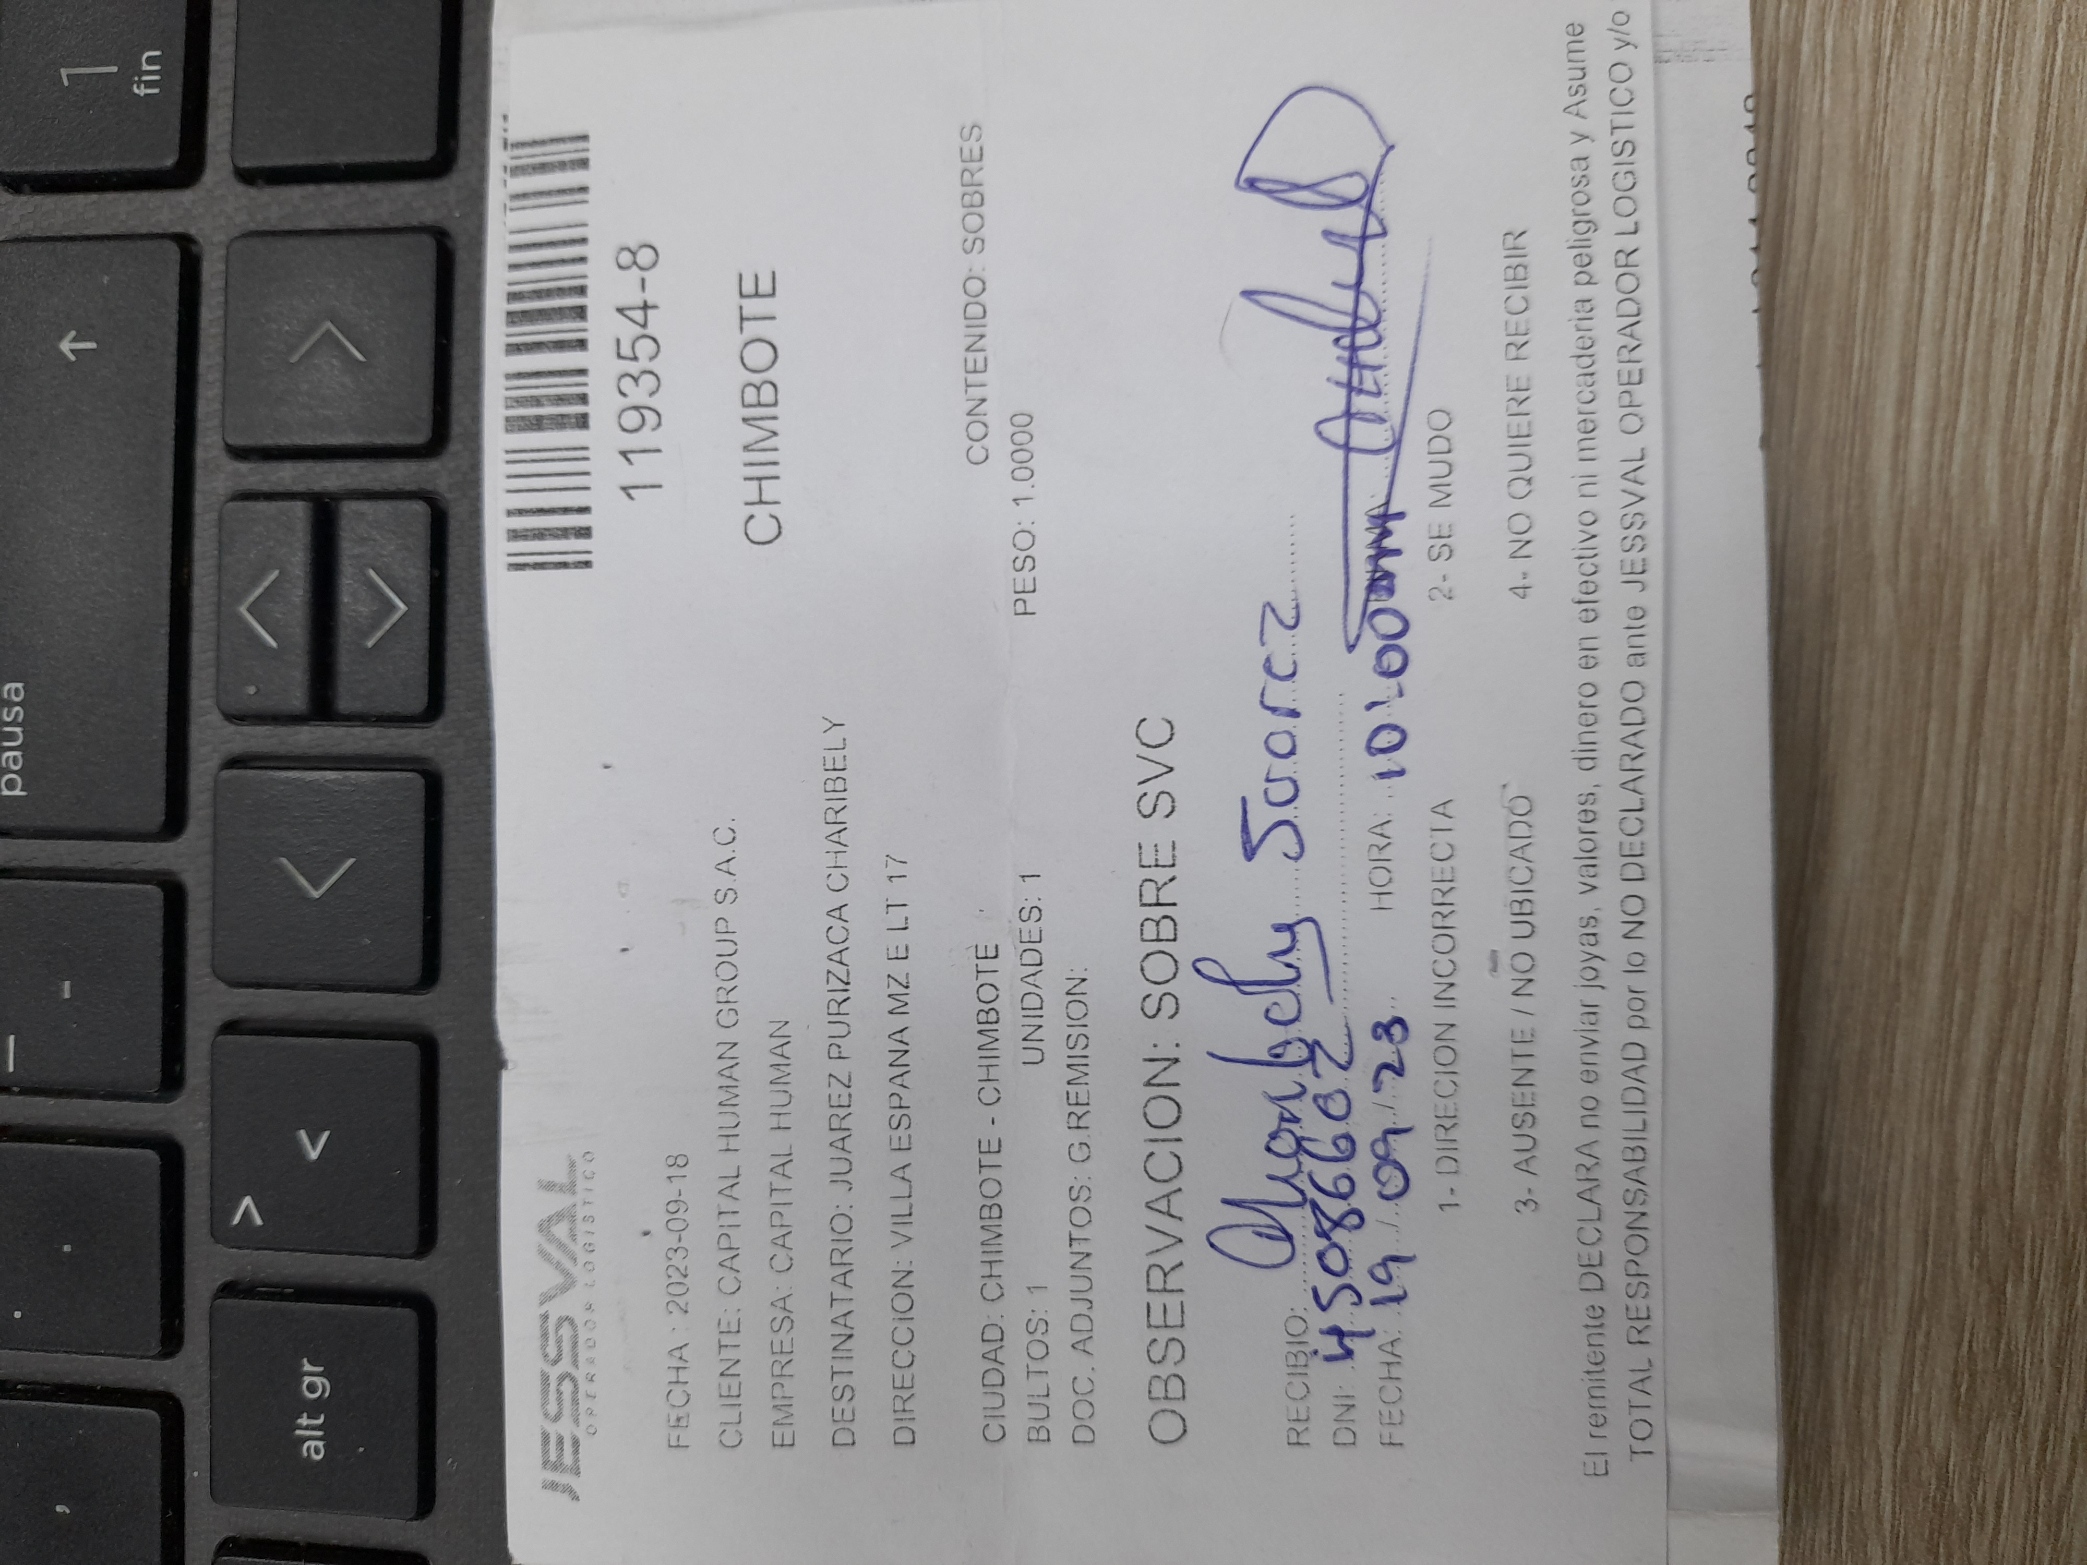 pausa
1
fin
alt gr
>
<
JESSVAL
OPERADOR LOGISTICO
119354-8
FECHA : 2023-09-18
CLIENTE: CAPITAL HUMAN GROUP S.A.C.
CHIMBOTE
EMPRESA: CAPITAL HUMAN
DESTINATARIO: JUAREZ PURIZACA CHARIBELY
DIRECCION: VILLA ESPANA MZ E LT 17
CIUDAD: CHIMBOTE - CHIMBOTE
CONTENIDO: SOBRES
BULTOS: 1 UNIDADES: 1 PESO: 1.0000
DOC. ADJUNTOS: G.REMISION:
OBSERVACION: SOBRE SVC
RECIBIO: Charibely Juarez
DNI: 45086602
FECHA: 19 / 09 / 23 HORA: 10:00am FIRMA:
1- DIRECION INCORRECTA 2- SE MUDO
3- AUSENTE / NO UBICADO 4- NO QUIERE RECIBIR
El remitente DECLARA no enviar joyas, valores, dinero en efectivo ni mercaderia peligrosa y Asume
TOTAL RESPONSABILIDAD por lo NO DECLARADO ante JESSVAL OPERADOR LOGISTICO y/o